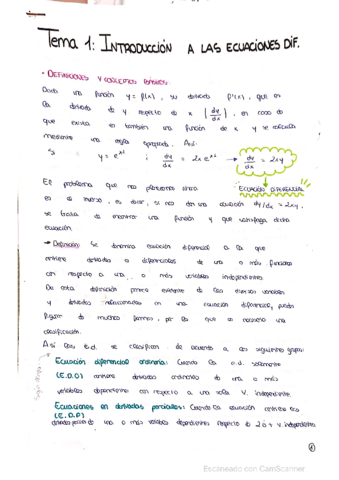 Tema 1: INTRODUCCIÓN A LAS ECUACIONES DIF.
• DEFINICIONES Y CONCEPTOS BÁSICOS:
Dada una función y = f(x), su derivada f'(x), que es
la derivada de y respecto de x [dy/dx], en caso de
que exista es también una función de x y se calcula
mediante una regla apropiada. Así:
Si y = e^x² ; dy/dx = 2x e^x² → dy/dx = 2xy
El problema que nos planteamos ahora ECUACIÓN DIFERENCIAL
es el inverso, es decir, si nos dan una ecuación dy/dx = 2xy,
se trata de encontrar una función y que satisfaga dicha
ecuación.
→ Definición: Se denomina ecuación diferencial a la que
contiene derivadas o diferenciales de una o más funciones
con respecto a una o más variables independientes.
De esta definición parece evidente de las diversas variables
y derivadas relacionadas en una ecuación diferencial, pueden
figurar de muchas formas, por lo que es necesario una
clasificación.
Así las e.d. se clasifican de acuerdo a los siguientes grupos:
Ecuación diferencial ordinaria: Cuando la e.d. solamente
(E.D.O) contiene derivadas ordinarias de una o más
variables dependientes con respecto a una sola V. independiente.
Ecuaciones en derivadas parciales: Cuando la ecuación contiene las
(E.D.P)
derivadas parciales de una o más variables dependientes respecto de 2 ó + v. independientes
1
Escaneado con CamScanner